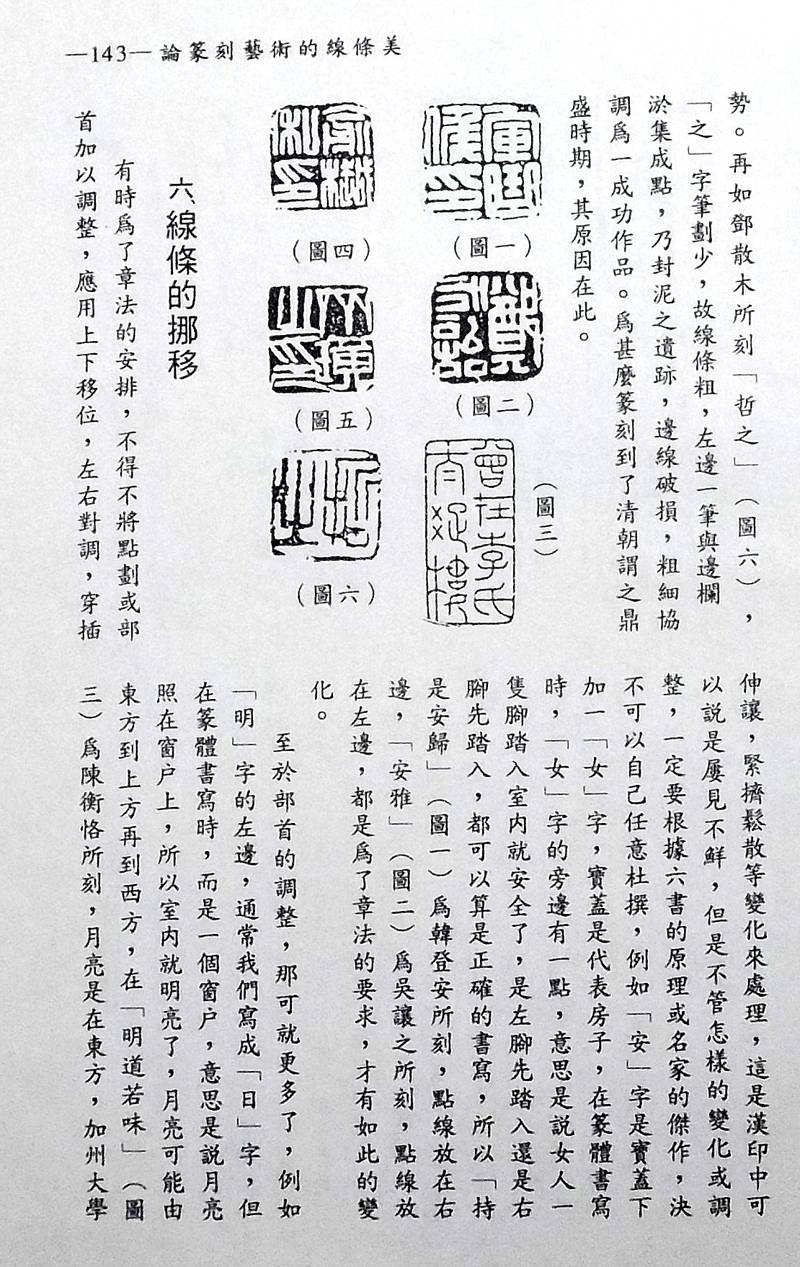 —143—論篆刻藝術的線條美
勢。再如鄧散木所刻「哲之」(圖六),
「之」字筆劃少,故線條粗,左邊一筆與邊欄
淤集成點,乃封泥之遺跡,邊線破損,粗細協
調爲一成功作品。爲甚麼篆刻到了清朝謂之鼎
盛時期,其原因在此。
(圖一)
(圖二)
(圖三)
(圖四)
(圖五)
(圖六)
六、線條的挪移
有時爲了章法的安排,不得不將點劃或部
首加以調整,應用上下移位,左右對調,穿插
伸讓,緊擠鬆散等變化來處理,這是漢印中可
以説是屢見不鮮,但是不管怎樣的變化或調
整,一定要根據六書的原理或名家的傑作,決
不可以自己任意杜撰,例如「安」字是寶蓋下
加一「女」字,寶蓋是代表房子,在篆體書寫
時,「女」字的旁邊有一點,意思是説女人一
隻腳踏入室内就安全了,是左腳先踏入還是右
腳先踏入,都可以算是正確的書寫,所以「持
是安歸」(圖一)爲韓登安所刻,點線放在右
邊,「安雅」(圖二)爲吳讓之所刻,點線放
在左邊,都是爲了章法的要求,才有如此的變
化。
至於部首的調整,那可就更多了,例如
「明」字的左邊,通常我們寫成「日」字,但
在篆體書寫時,而是一個窗户,意思是説月亮
照在窗户上,所以室内就明亮了,月亮可能由
東方到上方再到西方,在「明道若味」(圖
三)爲陳衡恪所刻,月亮是在東方,加州大學